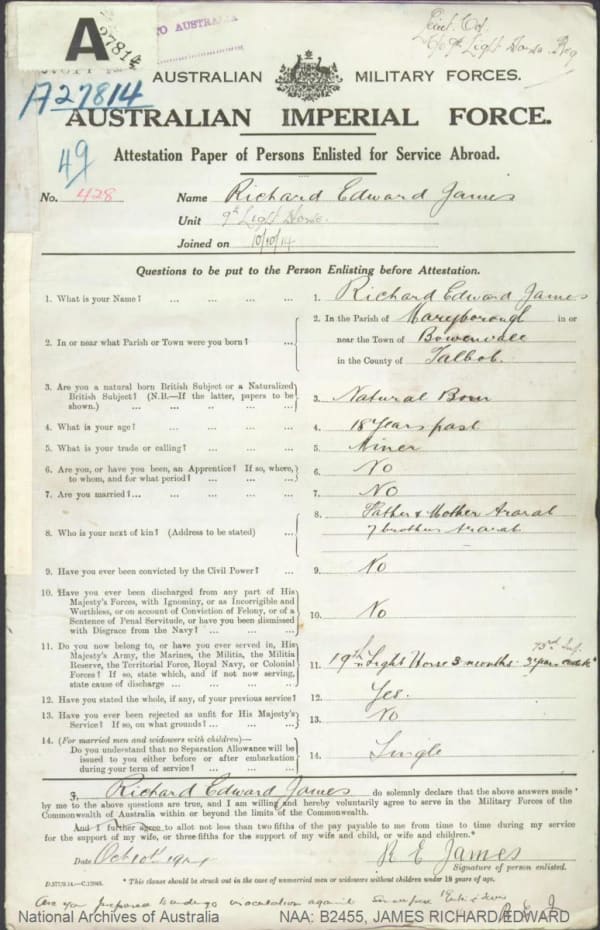 A
27814
TO AUSTRALIA
AUSTRALIAN MILITARY FORCES.
A27814
AUSTRALIAN IMPERIAL FORCE.
49
Attestation Paper of Persons Enlisted for Service Abroad.
No. 428 Name Richard Edward James
Unit 9th Light Horse.
Joined on 10/10/14
Questions to be put to the Person Enlisting before Attestation.
1. What is your Name? ... ... ... ... 1. Richard Edward James
2. In or near what Parish or Town were you born? ... 2. In the Parish of Maryborough in or
near the Town of Bowenvale
in the County of Talbot.
3. Are you a natural born British Subject or a Naturalized
British Subject? (N.B.—If the latter, papers to be
shown.) ... ... ... ... ... 3. Natural Born
4. What is your age? ... ... ... ... 4. 18 Years past
5. What is your trade or calling? ... ... ... 5. Miner
6. Are you, or have you been, an Apprentice? If so, where,
to whom, and for what period? ... ... ... 6. No
7. Are you married? ... ... ... ... ... 7. No
8. Who is your next of kin? (Address to be stated) ... 8. Father & Mother Ararat
7 brothers Ararat
9. Have you ever been convicted by the Civil Power? ... 9. No
10. Have you ever been discharged from any part of His
Majesty's Forces, with Ignominy, or as Incorrigible and
Worthless, or on account of Conviction of Felony, or of a
Sentence of Penal Servitude, or have you been dismissed
with Disgrace from the Navy? ... ... ... 10. No
11. Do you now belong to, or have you ever served in, His
Majesty's Army, the Marines, the Militia, the Militia
Reserve, the Territorial Force, Royal Navy, or Colonial
Forces? If so, state which, and if not now serving,
state cause of discharge ... ... ... ... 11. 19th Light Horse 3 months. 73rd Inf. 3 years
12. Have you stated the whole, if any, of your previous service? 12. Yes.
13. Have you ever been rejected as unfit for His Majesty's
Service? If so, on what grounds? ... ... ... 13. No
14. (For married men and widowers with children)—
Do you understand that no Separation Allowance will be
issued to you either before or after embarkation
during your term of service? ... ... ... 14. Single
I, Richard Edward James do solemnly declare that the above answers made
by me to the above questions are true, and I am willing and hereby voluntarily agree to serve in the Military Forces of the
Commonwealth of Australia within or beyond the limits of the Commonwealth.
And I further agree to allot not less than two fifths of the pay payable to me from time to time during my service
for the support of my wife, or three fifths for the support of my wife and child, or wife and children.*
Date Oct 10th 1914 R E James
Signature of person enlisted.
* This clause should be struck out in the case of unmarried men or widowers without children under 18 years of age.
Are you prepared to undergo inoculation against
R E J
National Archives of Australia NAA: B2455, JAMES RICHARD EDWARD